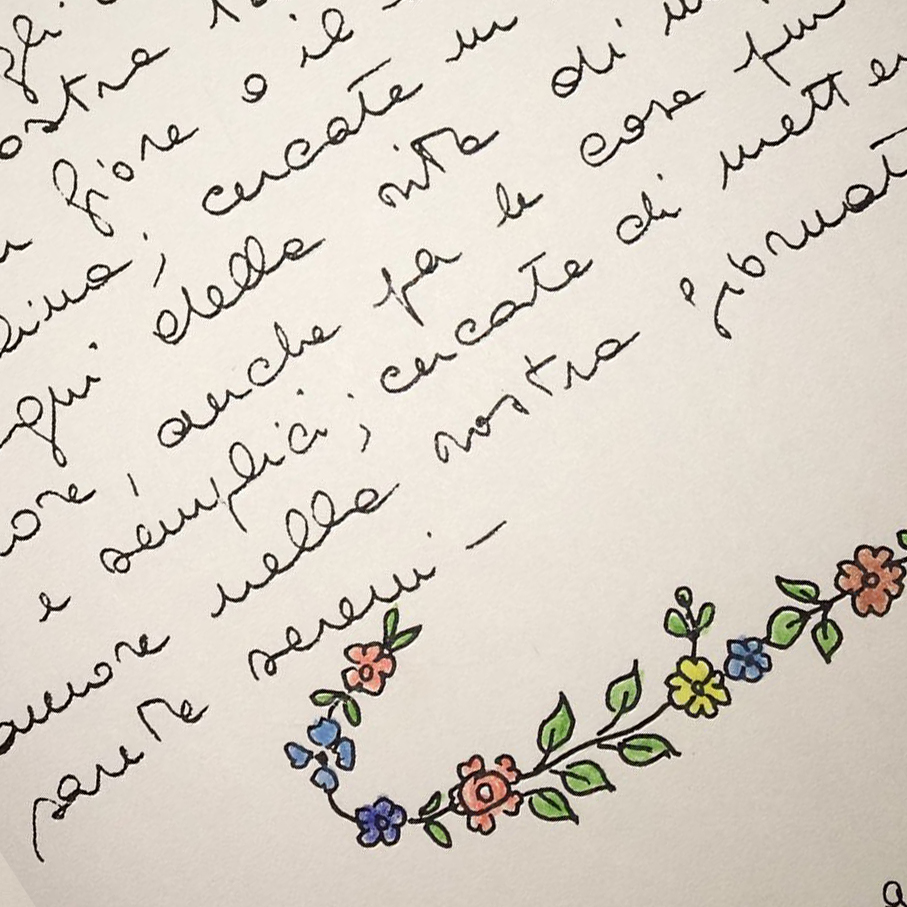 gli
ostre
fiore o il
lina; cercate in
ogni della vita di
ore, anche fa le cose piu
e semplici; cercate di metter
amore nella vostra giornat
parete sereni -